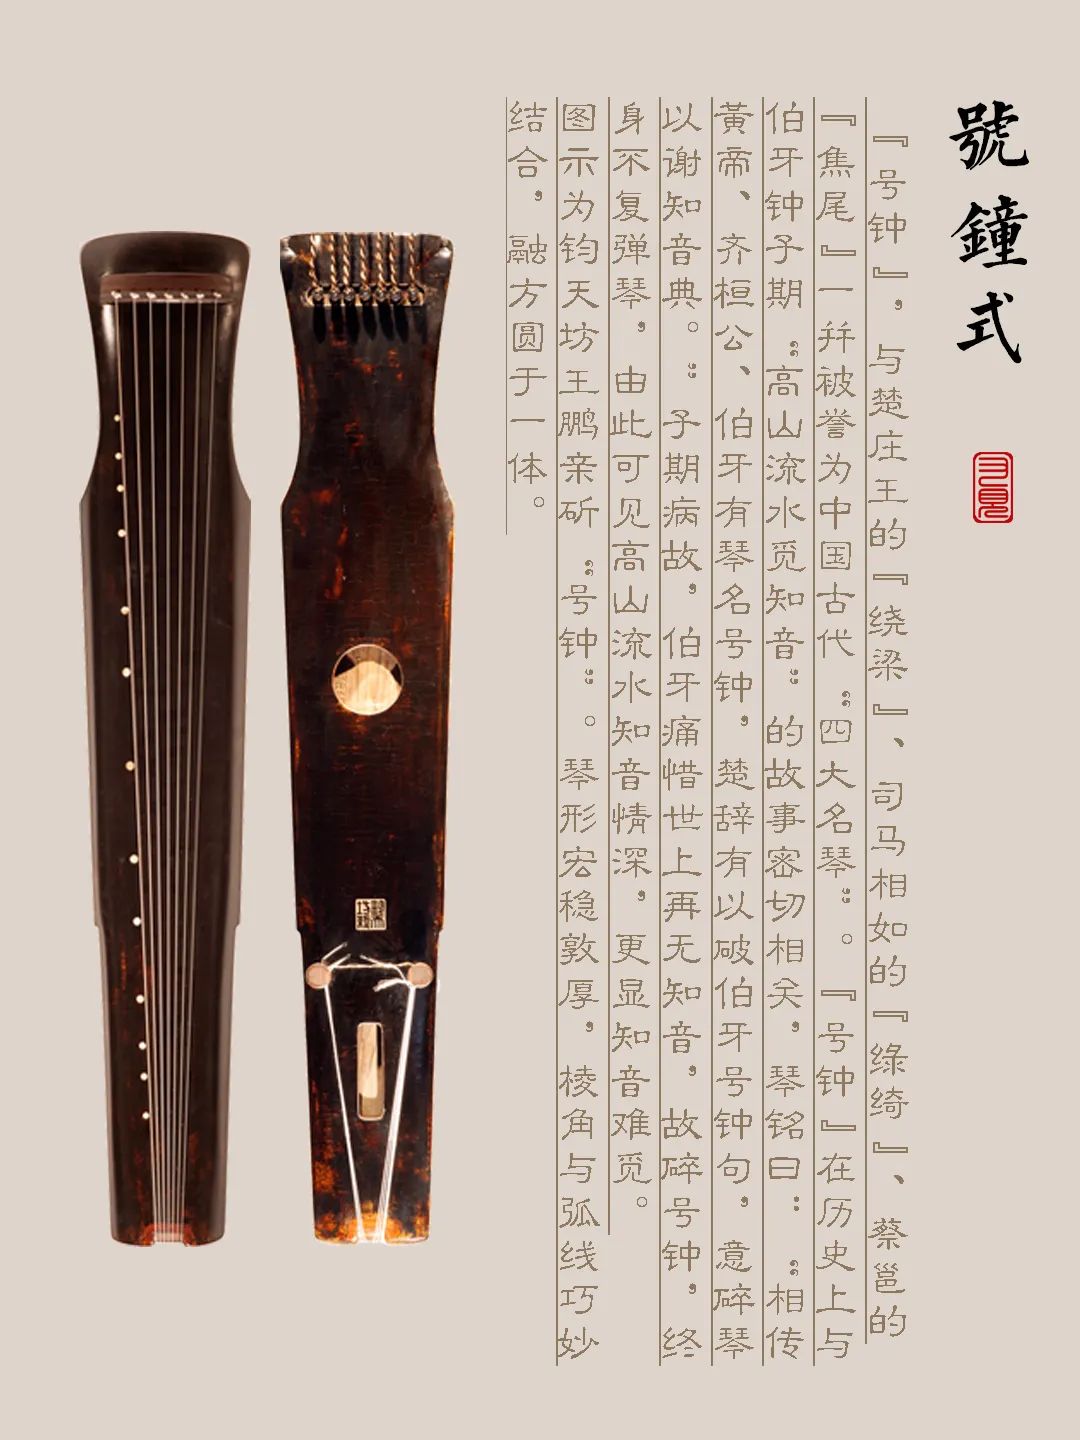 號鐘式
『号钟』，与楚庄王的『绕梁』、司马相如的『绿绮』、蔡邕的
『焦尾』一并被誉为中国古代“四大名琴”。『号钟』在历史上与
伯牙钟子期“高山流水觅知音”的故事密切相关，琴铭曰：“相传
黃帝、齐桓公、伯牙有琴名号钟，楚辞有以破伯牙号钟句，意碎琴
以谢知音典。”子期病故，伯牙痛惜世上再无知音，故碎号钟，终
身不复弹琴，由此可见高山流水知音情深，更显知音难觅。
图示为钧天坊王鹏亲斫“号钟”。琴形宏稳敦厚，棱角与弧线巧妙
结合，融方圆于一体。